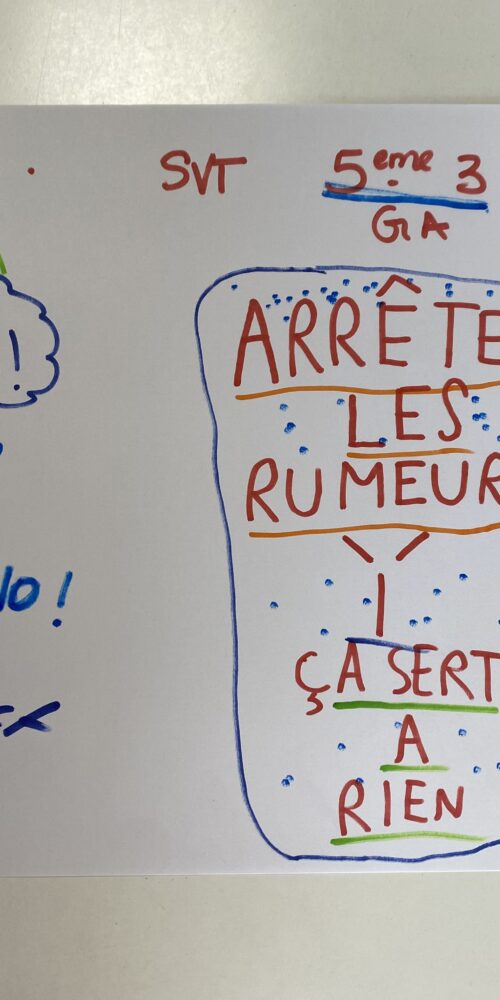 SVT 5eme 3
GA
!
ARRÊTE
LES
RUMEUR
ÇA SERT
A
RIEN
NO !